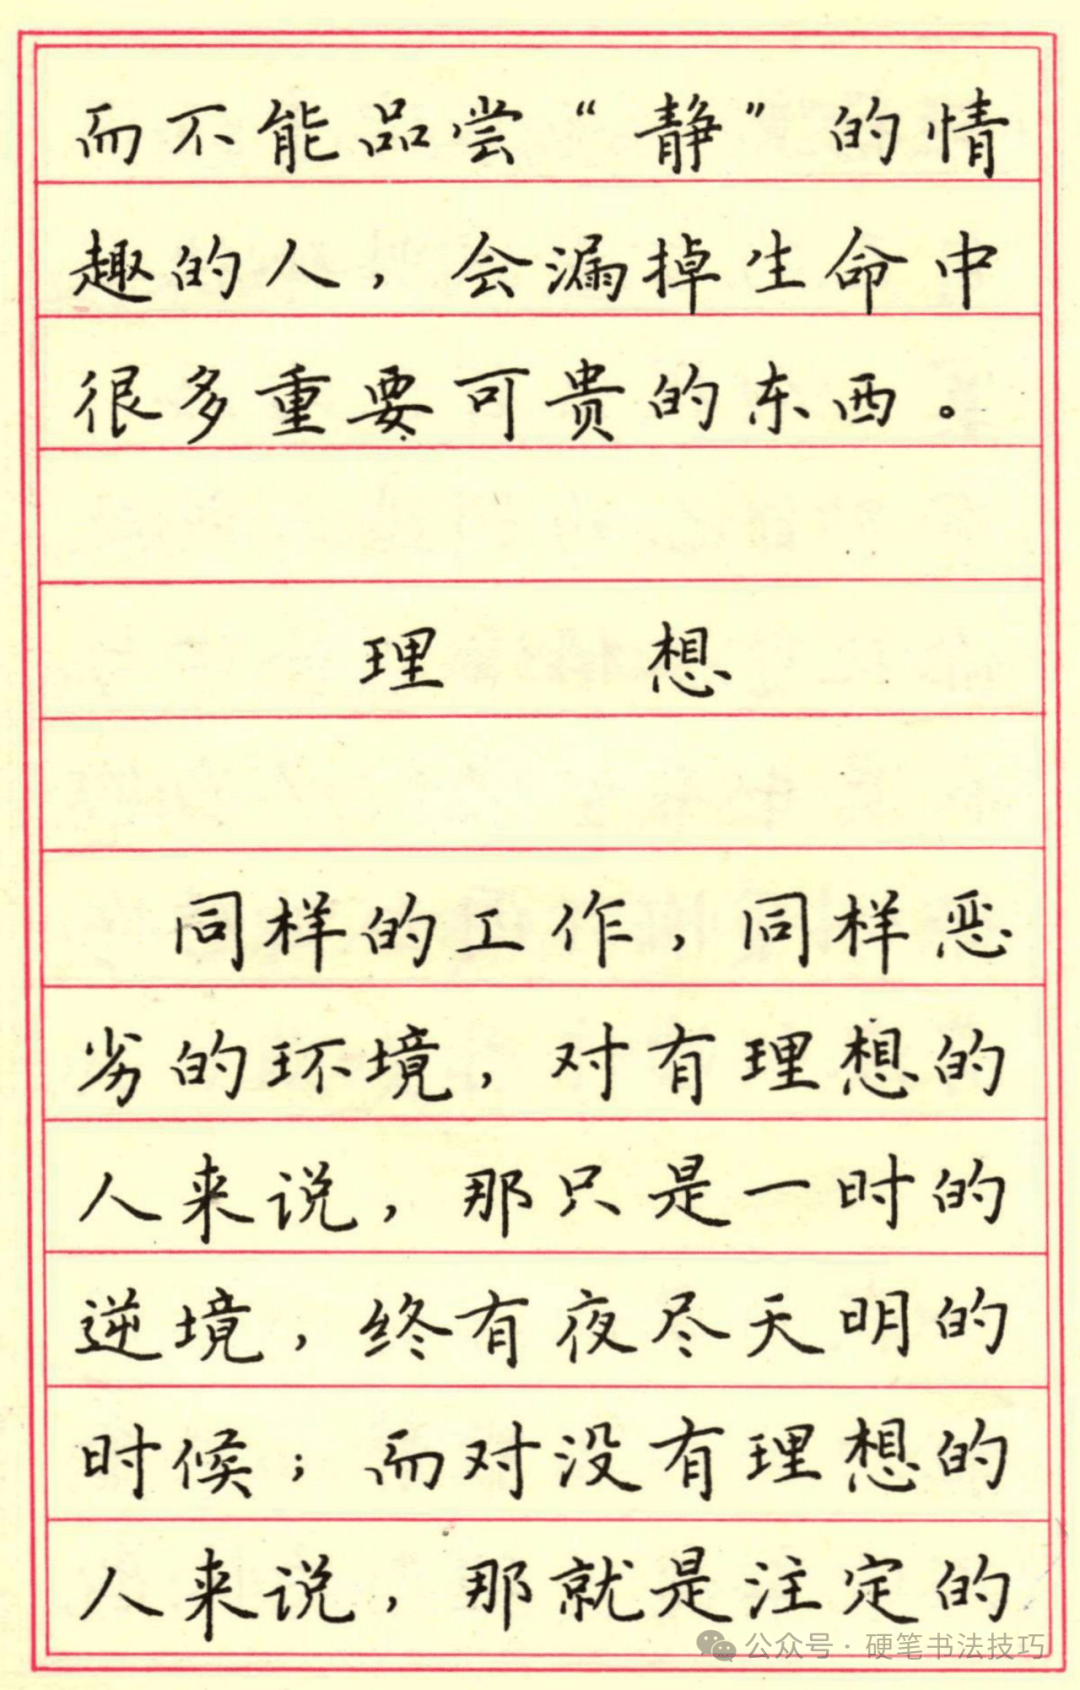 而不能品尝“静”的情
趣的人，会漏掉生命中
很多重要可贵的东西。
理想
同样的工作，同样恶
劣的环境，对有理想的
人来说，那只是一时的
逆境，终有夜尽天明的
时候；而对没有理想的
人来说，那就是注定的
公众号·硬笔书法技巧